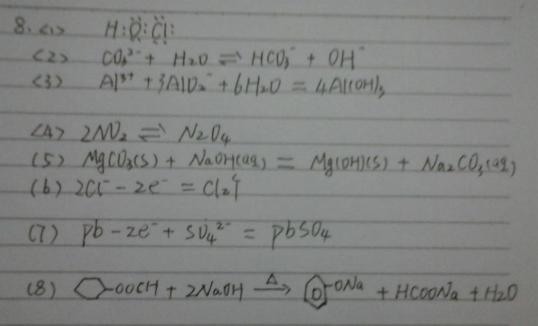 8. <1> H:Ö:C̈l:
<2> CO₃²⁻ + H₂O ⇌ HCO₃⁻ + OH⁻
<3> Al³⁺ + 3AlO₂⁻ + 6H₂O = 4Al(OH)₃
<4> 2NO₂ ⇌ N₂O₄
(5) MgCO₃(s) + NaOH(aq) = Mg(OH)(s) + Na₂CO₃(aq)
(6) 2Cl⁻ - 2e⁻ = Cl₂↑
(7) pb - 2e⁻ + SO₄²⁻ = pbSO₄
(8) -OOCH + 2NaOH △→ -ONa + HCOONa + H₂O